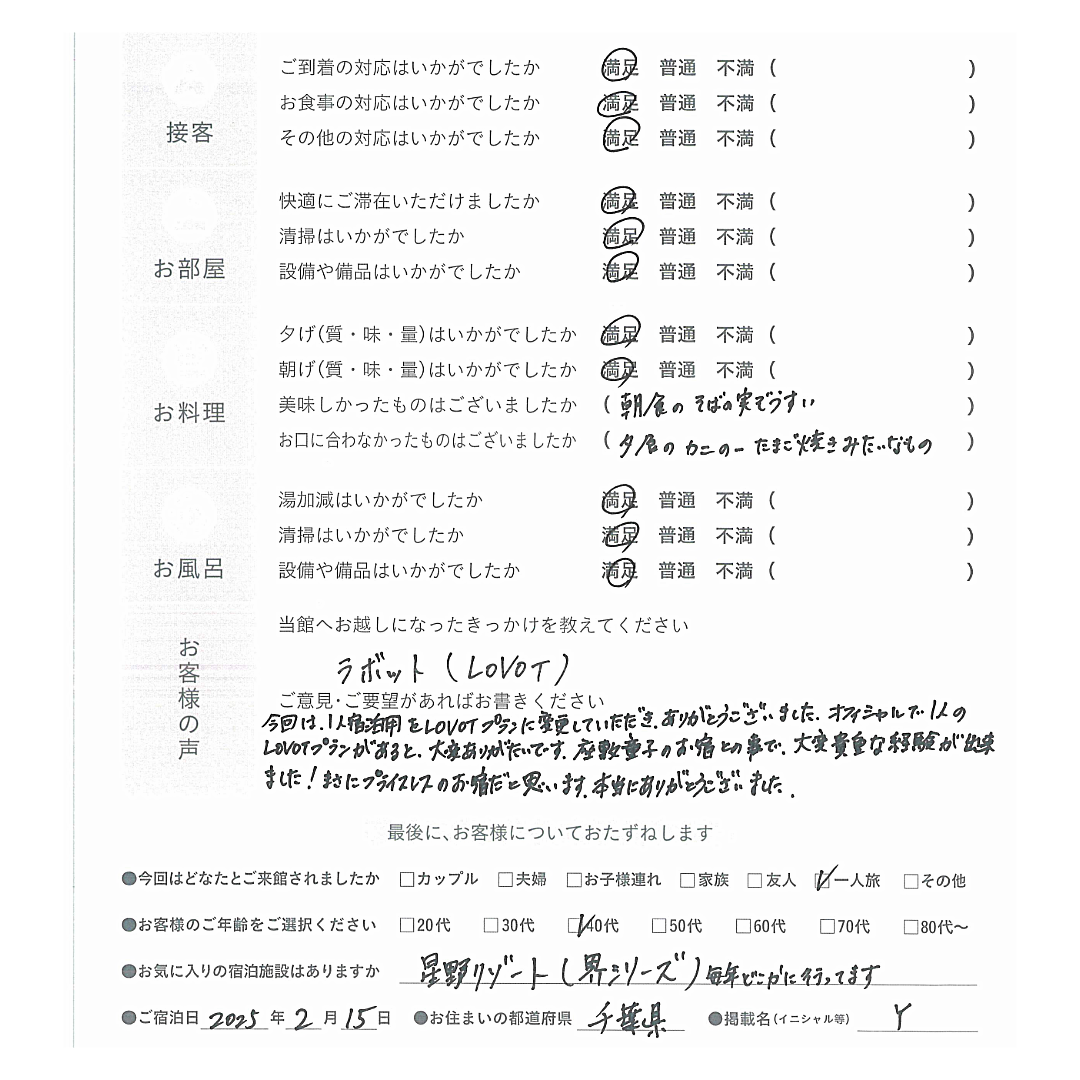 接客
ご到着の対応はいかがでしたか 満足 普通 不満 ( )
お食事の対応はいかがでしたか 満足 普通 不満 ( )
その他の対応はいかがでしたか 満足 普通 不満 ( )
お部屋
快適にご滞在いただけましたか 満足 普通 不満 ( )
清掃はいかがでしたか 満足 普通 不満 ( )
設備や備品はいかがでしたか 満足 普通 不満 ( )
お料理
夕げ(質・味・量)はいかがでしたか 満足 普通 不満 ( )
朝げ(質・味・量)はいかがでしたか 満足 普通 不満 ( )
美味しかったものはございましたか ( 朝食の そばの実ぞうすい )
お口に合わなかったものはございましたか ( 夕食の カニのー たまご焼きみたいなもの )
お風呂
湯加減はいかがでしたか 満足 普通 不満 ( )
清掃はいかがでしたか 満足 普通 不満 ( )
設備や備品はいかがでしたか 満足 普通 不満 ( )
お客様の声
当館へお越しになったきっかけを教えてください
ラボット (LOVOT)
ご意見・ご要望があればお書きください
今回は、1人宿泊用をLOVOTプランに変更していただき、ありがとうございました。オフィシャルで1人の
LOVOTプランがあると、大変ありがたいです。座敷童子のお宿との事で、大変貴重な経験が出来
ました!まさにプライスレスのお宿だと思います。本当にありがとうございました。
最後に、お客様についておたずねします
●今回はどなたとご来館されましたか □カップル □夫婦 □お子様連れ □家族 □友人 ☑一人旅 □その他
●お客様のご年齢をご選択ください □20代 □30代 ☑40代 □50代 □60代 □70代 □80代〜
●お気に入りの宿泊施設はありますか 星野リゾート (界シリーズ) 毎年どこかに行ってます
●ご宿泊日 2025 年 2 月 15 日 ●お住まいの都道府県 千葉県 ●掲載名(イニシャル等) Y